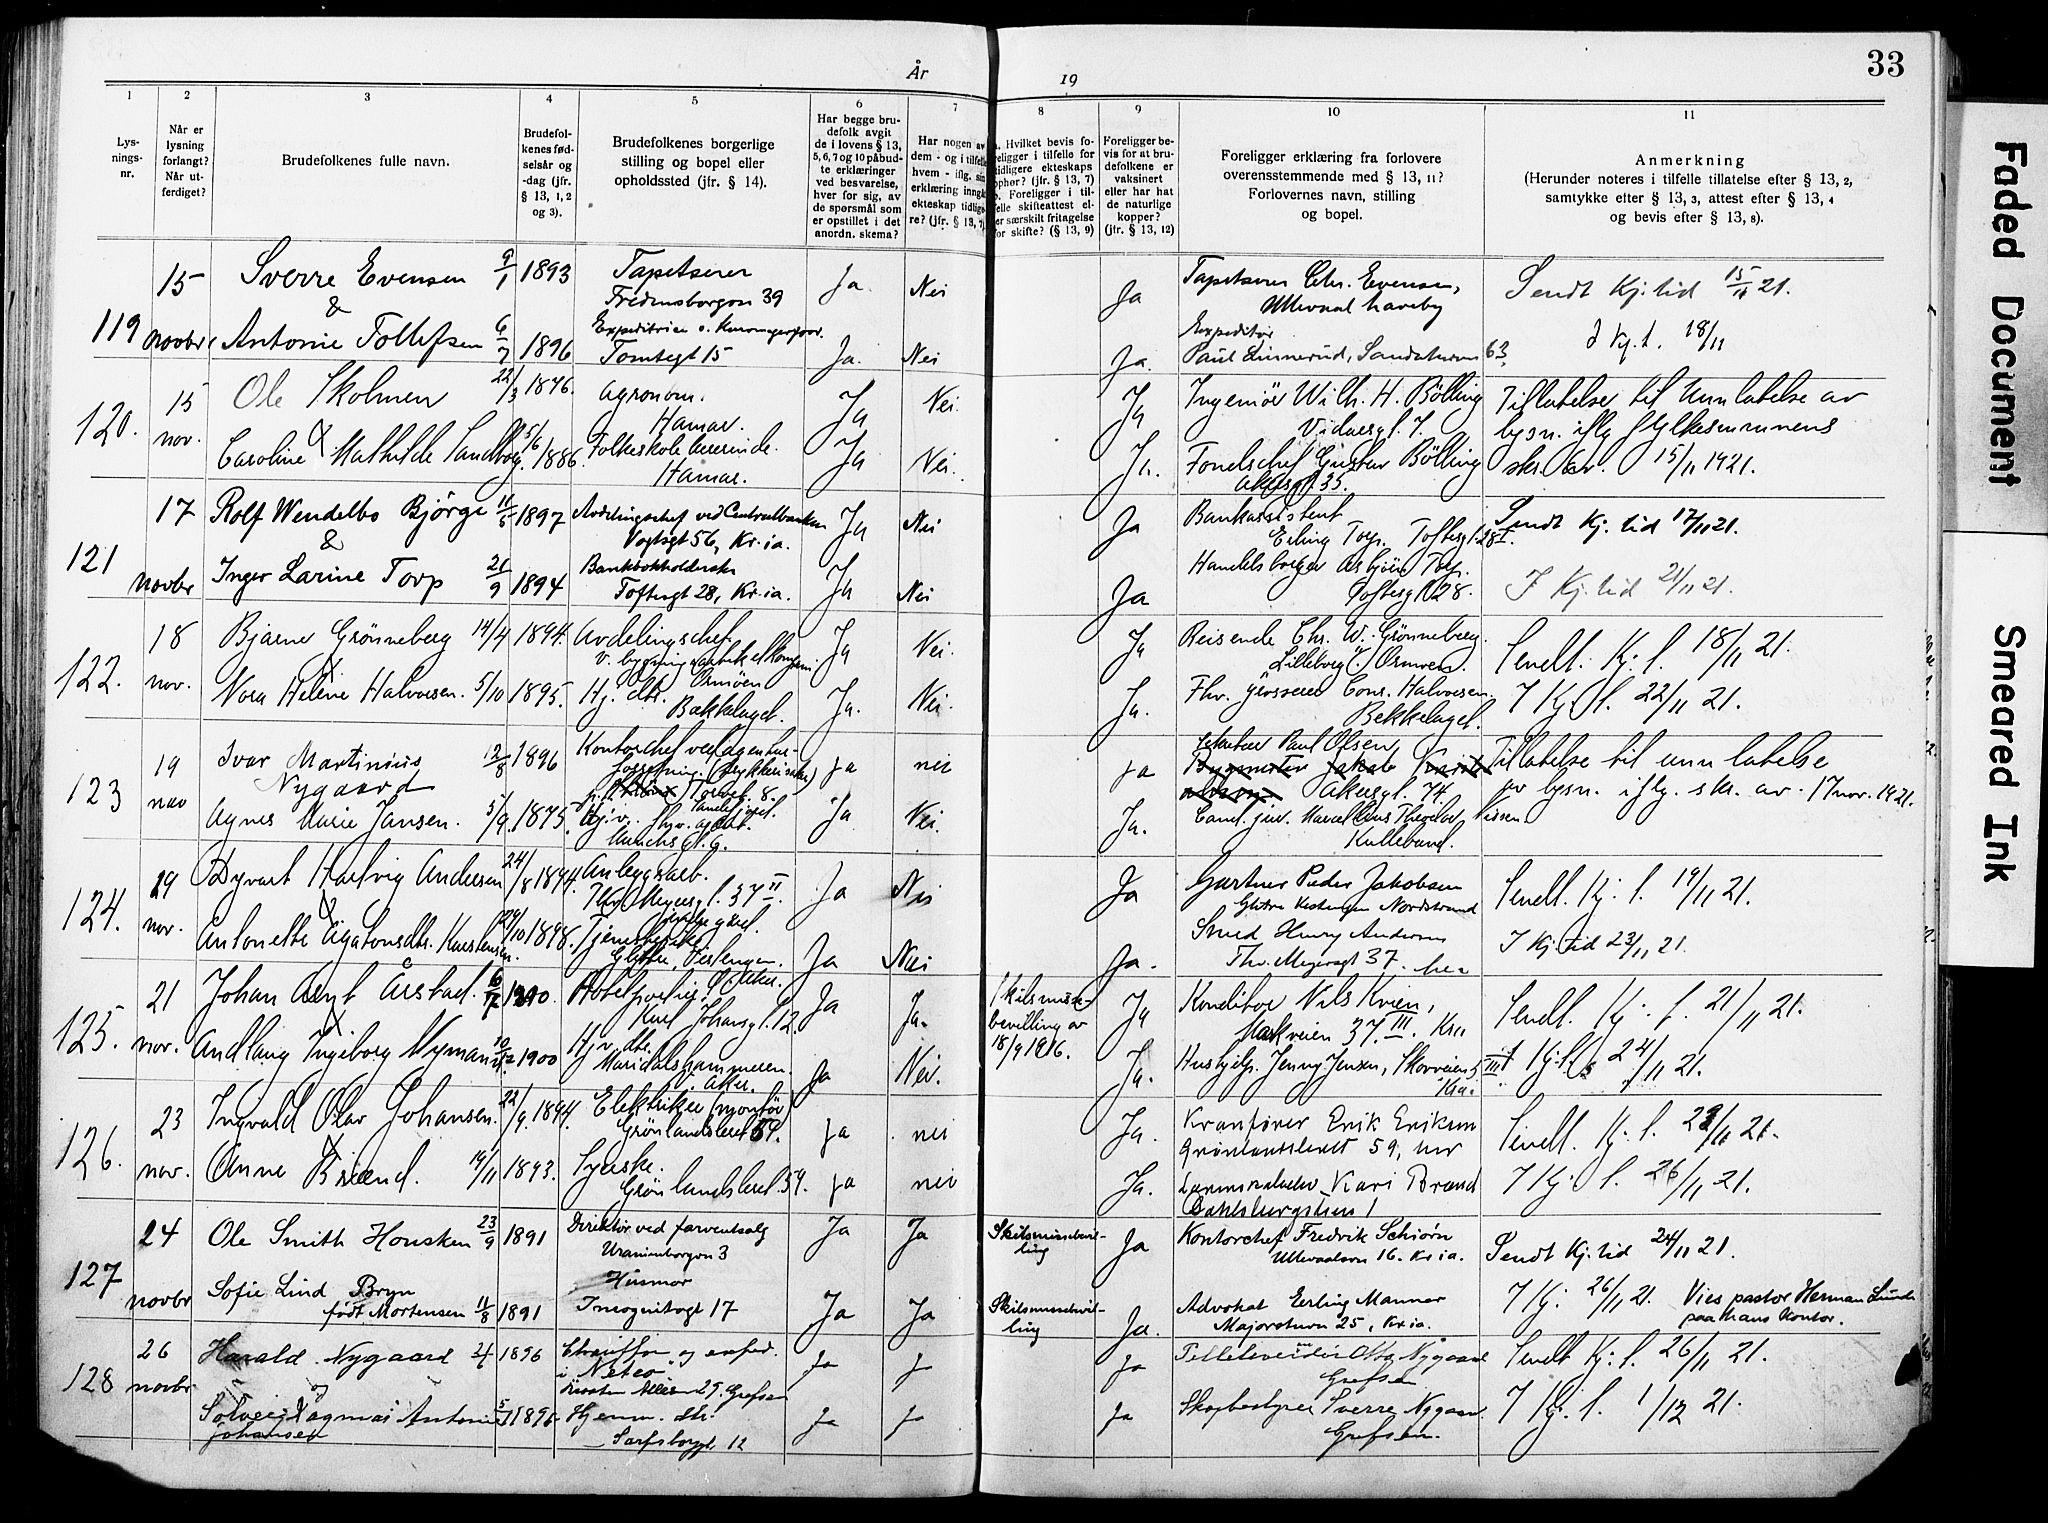 33
År 19
1 2 3 4 5 6 7 8 9 10 11
Lysningsnr.
Når er lysning forlangt? Når utferdiget?
Brudefolkenes fulle navn.
Brudefolkenes fødselsår og -dag (jfr. § 13, 1, 2 og 3).
Brudefolkenes borgerlige stilling og bopel eller opholdssted (jfr. § 14).
Har begge brudefolk avgit de i lovens § 13, 5, 6, 7 og 10 påbudte erklæringer ved besvarelse, hver for sig, av de spørsmål som er opstillet i det anordn. skema?
Har nogen av dem - og i tilfelle hvem - iflg. sin erklæring inngått ekteskap tidligere? (jfr. § 13, 7)
Hvilket bevis foreligger i tilfelle for tidligere ekteskaps ophør? (jfr. § 13, 7) Foreligger i tilfelle skifteattest eller særskilt fritagelse for skifte? (§ 13, 9)
Foreligger bevis for at brudefolkene er vaksinert eller har hat de naturlige kopper? (jfr. § 13, 12)
Foreligger erklæring fra forlovere overensstemmende med § 13, 11? Forlovernes navn, stilling og bopel.
Anmerkning (Herunder noteres i tilfelle tillatelse efter § 13, 2, samtykke efter § 13, 3, attest efter § 13, 4 og bevis efter § 13, 8).
119 15 novbr
Sverre Evensen 9/1 1893 Tapetserer Fredensborgvn 39 Ja Nei Ja Tapetserer Chr. Evensen, Ullevaal haveby Sendt Kj. tid 15/11 21.
&
Antonie Tollefsen 6/7 1896 Tomtegt 15 Ja. Nei Ja. Expeditør Paul Linnerud, 63 I Kj. t. 18/11
120. 15 nov.
Ole Skolmen 22/3 1876. agronom. Hamar. Ja Nei. Ja Ingeniør Wilh. H. Bölling Vidarsgt. 7. Tillatelse til unnlatelse av
Caroline Mathilde Sandborg 1886. Folkeskolelærerinde. Hamar. Ja Nei. Ja. Gustav Bölling Akersgt 35. lysn. iflg fylkesmannens skr. av. 15/11 1921.
121 17 novbr
Rolf Wendelbo Bjørge 11/5 1897 Avdelingschef ved Centralbanken Vogtsgt 56, Kr.ia. Ja Nei Ja Bankassistent Erling Torp. Toftesgt. 28 I. Sendt Kj. tid 17/11 21.
&
Inger Larine Torp 21/9 1894 Bankbokholderske Toftesgt 28, Kr.ia. Ja Nei Ja Handelsborger Asbjørn Torp. Toftesgt 28. I Kj. tid 21/11 21.
122. 18 nov.
Bjarne Grønneberg 14/4 1894. Avdelingschef v. Ormøen Ja Nei. Ja Reisende Chr. W. Grønneberg. Ormøen. Sendt. Kj. t. 18/11 21.
Nora Helene Halvorsen. 5/10 1895. Hj. dtr. Bækkelaget. Ja. Nei. Ja. Fhv. grosserer Cons. Halvorsen. Bekkelaget. I Kj. t. 22/11 21.
123 19 nov
Ivar Martinius Nygaard 12/8 1896 Kontorchef ved Torvet. 8. ja nei ja Paul Olsen Akersgt. 74. Tillatelse til unnlatelse
Agnes Marie Jansen. 5/9. 1875. Hj. v. Munchsgt. 9. Ja Nei. Ja. Cand. jur. Theodor Nissen. Kullebund. av lysn. iflg. skr. av. 17 nov. 1921.
124. 19 nov.
Dyvart Hartvig Andersen 24/8 1894. Anleggsarb. Thv. Meyersgt. 37 II. Ja Nei Ja Gartner Peder Jakobsen Nordstrand Sendt. Kj. t. 19/11 21.
Antonette Agatonsdtr. Karstensen. 29/10 1898. Ja Nei Ja. Smed Henry Andersen Thv. Meyersgt 37. I Kj. tid 23/11 21.
125. 21 nov.
Johan Arnt Årstad. 6/7 Karl Johansgt. 12. Ja Ja. Skilsmissebevilling av 18/9 1916. Ja Konditor Nils Kvien, Markveien 37. III. Kra Sendt. Kj. t. 21/11 21.
Andlaug Ingeborg Nyman 1900 Hj. v. dtr. Maridalshammeren. V. Aker. Ja Nei. Ja. Jenny Jensen, Skovveien 5 III Kra. I Kj. t. 24/11 21.
126. 23 nov.
Ingvald Olav Johansen. 22/9. 1894. Elektriker (montør) Grønlandsleret 59. ja nei Ja. Kranfører Erik Eriksen Grønlandsleret 59, Sendt. Kj. t. 23/11 21.
Anne Brænd. 14/11 1893. Syerske. Grønlandsleret 59. ja nei Ja. Kari Brænd I Kj. t. 26/11 21.
127 24 novbr
Ole Smith Housken 23/9 1891 Direktør ved farventsalg Uranienborgvn 3 Ja Ja Skilsmissebevilling Ja Kontorchef Fredrik Schiørn Ullevaalsvn 16. Kr.ia. Sendt Kj. tid 24/11 21.
Sofie Lind Bryn født Mortensen 11/8 1891 Husmor Incognitogt 17 Ja Ja Skilsmissebevilling Ja. Advokat Erling Manner Majorstuvn 25, Kr.ia. I Kj. 26/11 21. Vies pastor Herman Lunde paa Hans Kontor.
128 26 novbr
Harald Nygaard 1896 Chauffør og i "Neteo" 29. Grefsen ja Nygaard Grefsen Sendt Kj. t. 26/11 21.
og
Solveig Dagmar Antonie Johansen 1896 Hjemm. dtr. Sarpsborggt 12 ja ja Skogbestyrer Sverre Nygaard. Grefsen. I Kj. t. 1/12 21.
Faded Document Smeared Ink